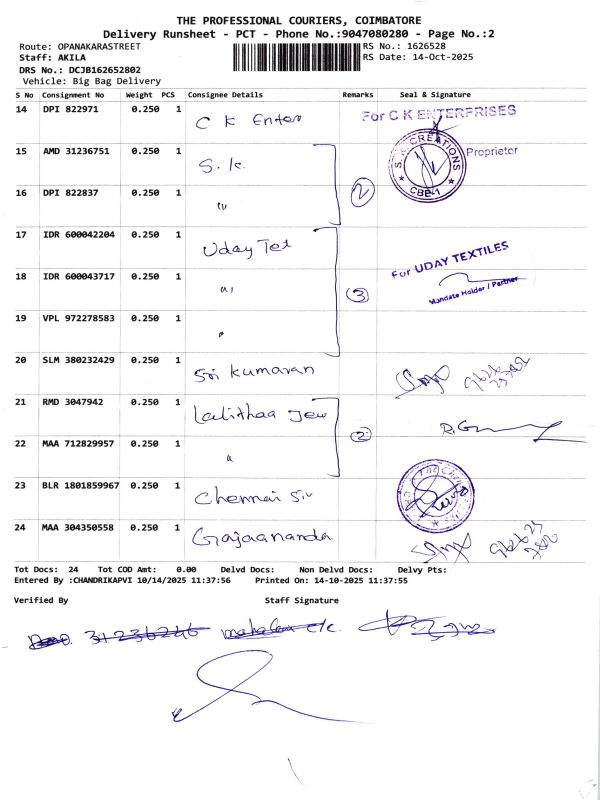 THE PROFESSIONAL COURIERS, COIMBATORE
Delivery Runsheet - PCT - Phone No.:9047080280 - Page No.:2
Route: OPANAKARASTREET RS No.: 1626528
Staff: AKILA RS Date: 14-Oct-2025
DRS No.: DCJB162652802
Vehicle: Big Bag Delivery
S No Consignment No Weight PCS Consignee Details Remarks Seal & Signature
14 DPI 822971 0.250 1 C K Enter For C K ENTERPRISES
15 AMD 31236751 0.250 1 S. K. S. K. CREATIONS CBE-1 Proprietor
16 DPI 822837 0.250 1 " 2
17 IDR 600042204 0.250 1 Uday Tet For UDAY TEXTILES
18 IDR 600043717 0.250 1 " 3 Mandate Holder / Partner
19 VPL 972278583 0.250 1 "
20 SLM 380232429 0.250 1 Sri Kumaran
21 RMD 3047942 0.250 1 Lalithaa Jew 2
22 MAA 712829957 0.250 1 "
23 BLR 1801859967 0.250 1 Chennai Sil The Chennai
24 MAA 304350558 0.250 1 Gajaananda
Tot Docs: 24 Tot COD Amt: 0.00 Delvd Docs: Non Delvd Docs: Delvy Pts:
Entered By :CHANDRIKAPVI 10/14/2025 11:37:56 Printed On: 14-10-2025 11:37:55
Verified By Staff Signature
31236246